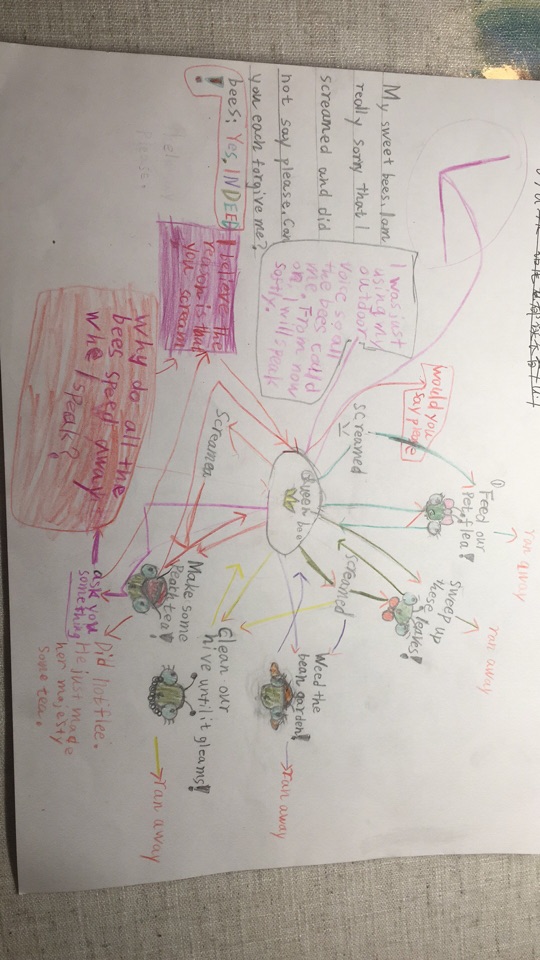 ran away
ran away
ran away
ran away
① Feed our
Pet flea!
Sweep up
these leaves!
Weed the
bean garden!
Clean our
hive until it gleams!
Make some
Peach tea!
Did not flee.
He just made
her majesty
some tea.
would you
say please
screamed
screamed
Queen bee
Screamed
ask you
something
My sweet bees, I am
really sorry that I
screamed and did
not say please. Can
you each forgive me?
bees: Yes, INDEED
!
I was just
using my
outdoor
voice so all
the bees could
me. From now
on, I will speak
softly.
I believe the
reason is that
you scream
Why do all the
bees speed away
when I speak?
Please.